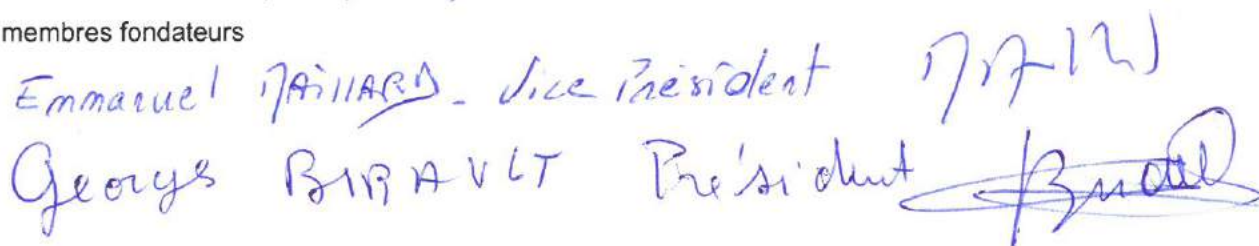 membres fondateurs
Emmanuel MAILLARD - Vice Président
Georges BIRAULT Président